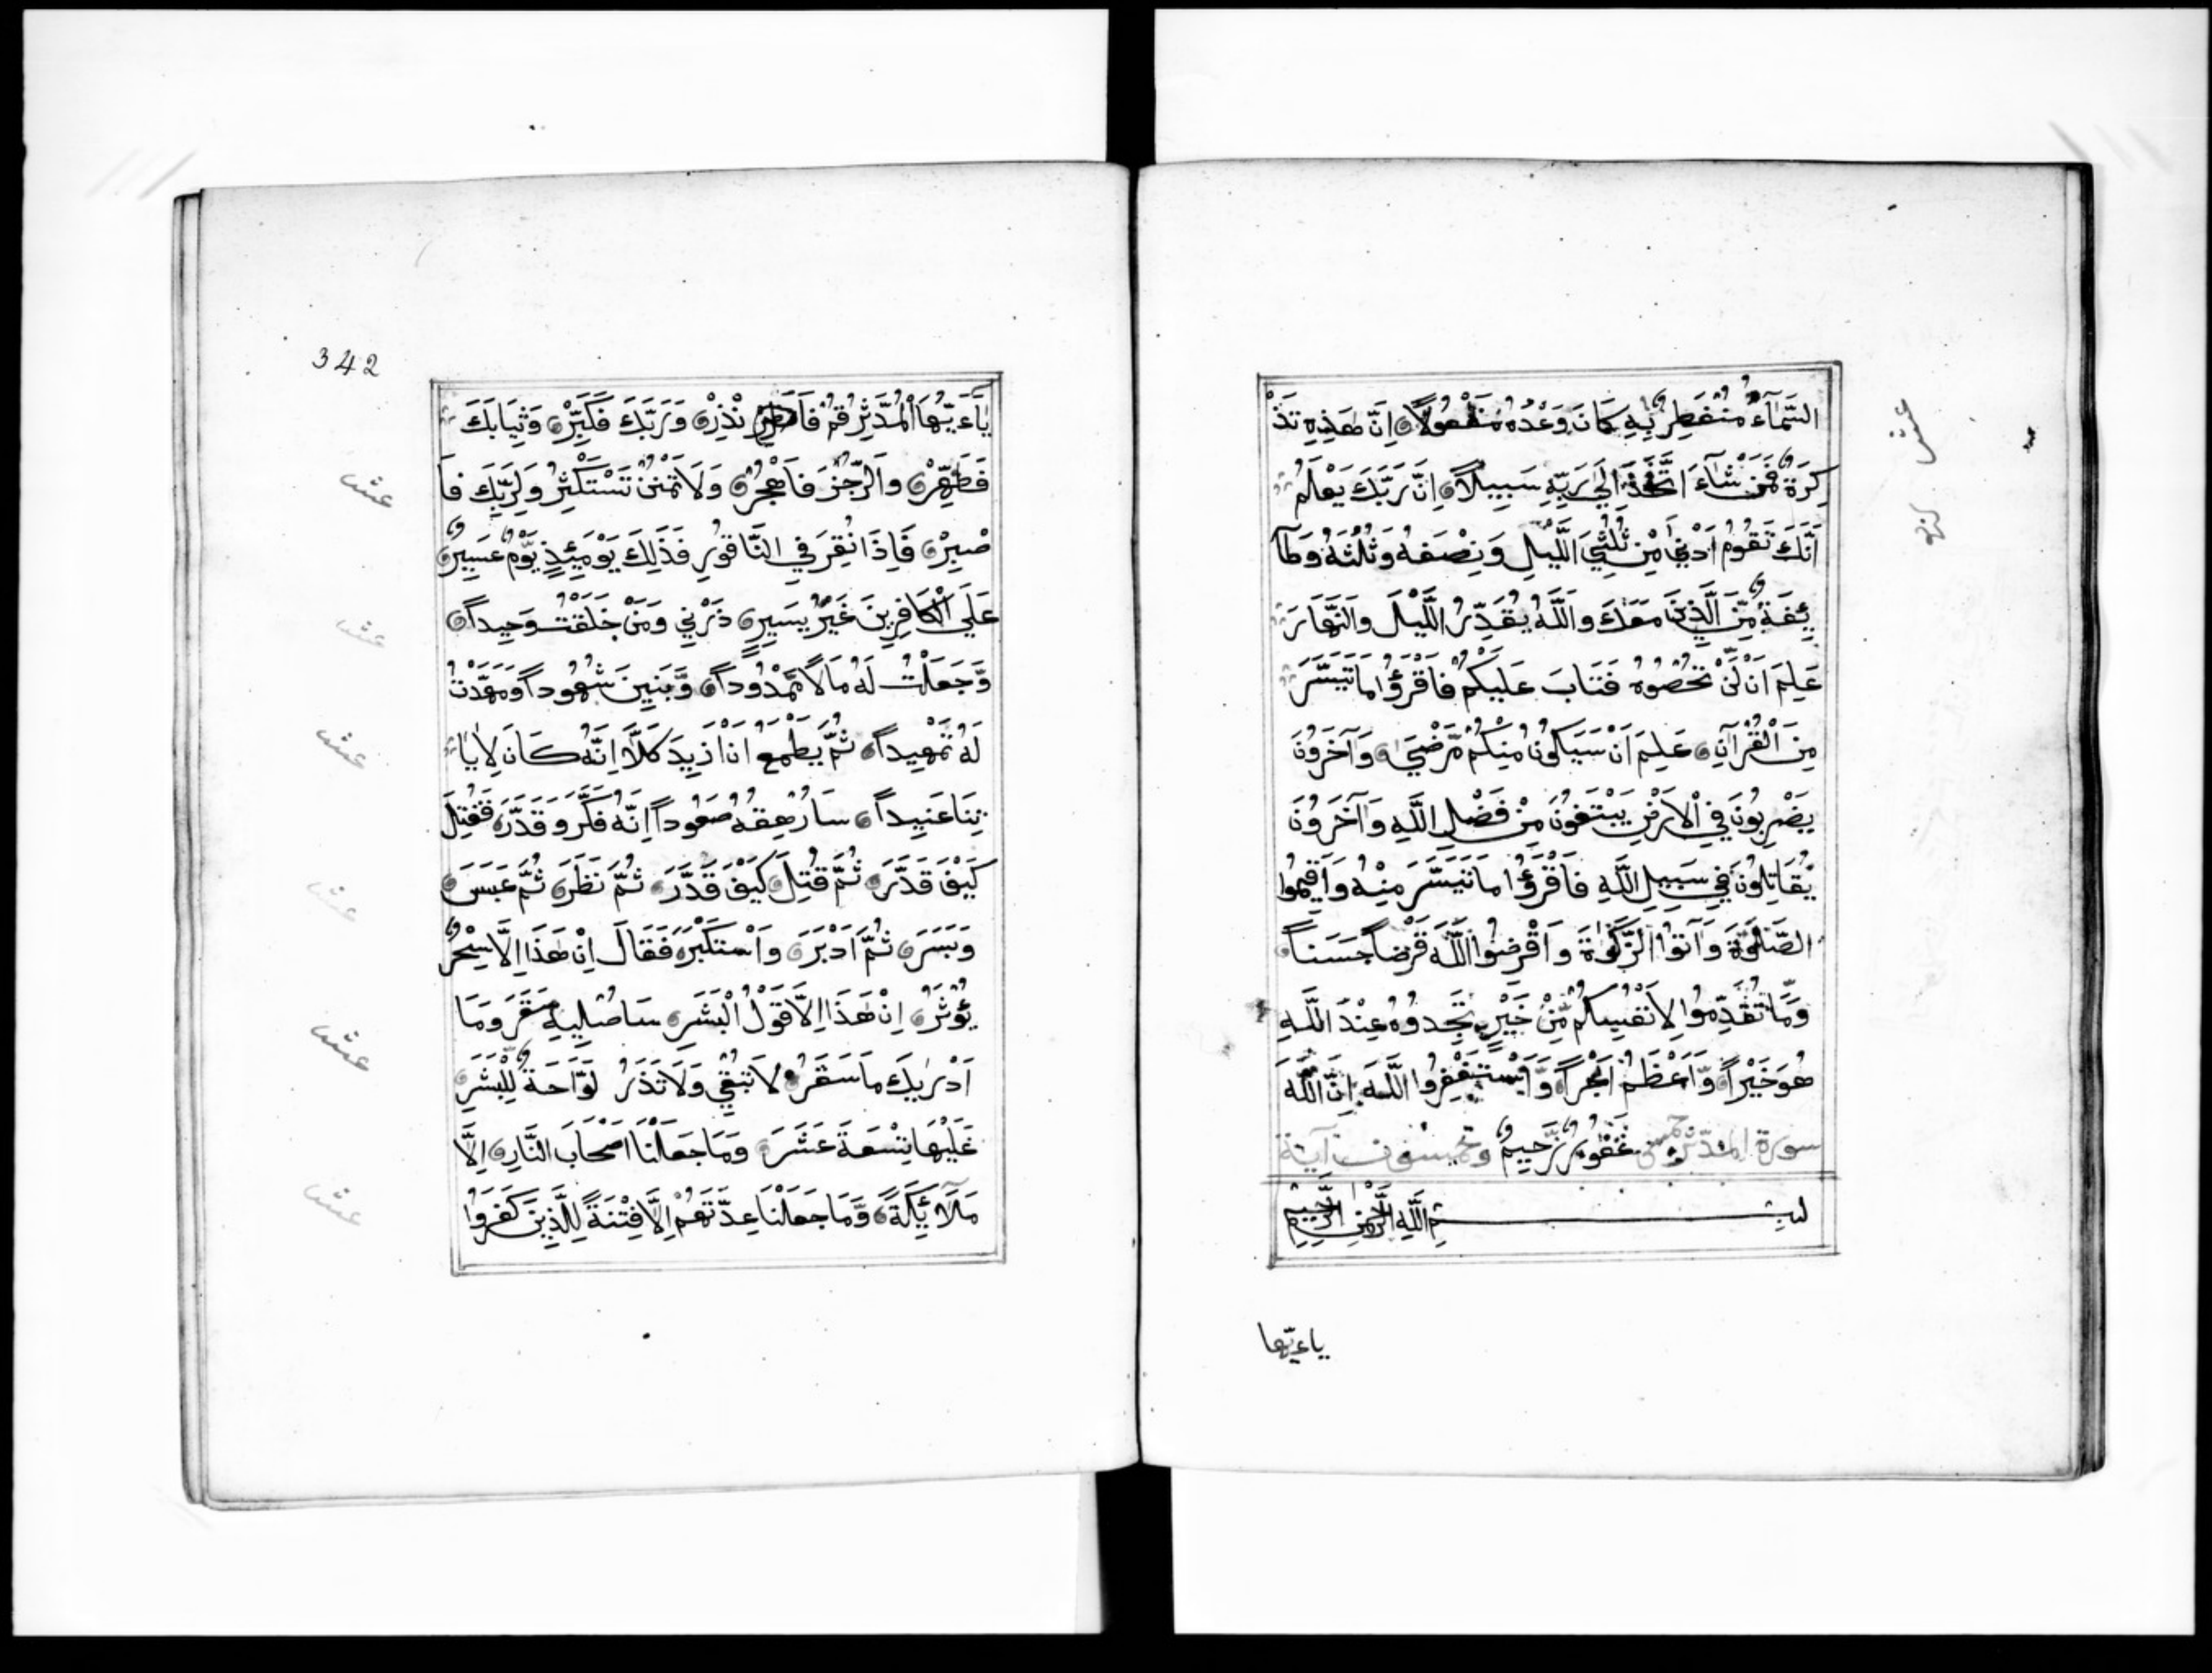 السَّمَآءُ مُنْفَطِرٌ بِهِ كَانَ وَعْدُهُ مَفْعُولًا اِنَّ هٰذِهِ تَذْ
كِرَةٌ فَمَنْ شَآءَ اتَّخَذَ اِلَىٰ رَبِّهِ سَبِيلًا اِنَّ رَبَّكَ يَعْلَمُ
اَنَّكَ تَقُومُ اَدْنٰى مِنْ ثُلُثَيِ اللَّيْلِ وَنِصْفَهُ وَثُلُثَهُ وَطَآ
ئِفَةٌ مِّنَ الَّذِينَ مَعَكَ وَاللَّهُ يُقَدِّرُ اللَّيْلَ وَالنَّهَارَ
عَلِمَ اَنْ لَّنْ تُحْصُوهُ فَتَابَ عَلَيْكُمْ فَاقْرَؤُا مَا تَيَسَّرَ
مِنَ الْقُرْآنِ عَلِمَ اَنْ سَيَكُونُ مِنْكُمْ مَّرْضٰى وَآخَرُونَ
يَضْرِبُونَ فِي الْاَرْضِ يَبْتَغُونَ مِنْ فَضْلِ اللَّهِ وَآخَرُونَ
يُقَاتِلُونَ فِي سَبِيلِ اللَّهِ فَاقْرَؤُا مَا تَيَسَّرَ مِنْهُ وَاَقِيمُوا
الصَّلٰوةَ وَآتُوا الزَّكٰوةَ وَاَقْرِضُوا اللَّهَ قَرْضاً حَسَناً
وَمَا تُقَدِّمُوا لِاَنْفُسِكُمْ مِّنْ خَيْرٍ تَجِدُوهُ عِنْدَ اللَّهِ
هُوَ خَيْراً وَّاَعْظَمُ اَجْراً وَّاسْتَغْفِرُوا اللَّهَ اِنَّ اللَّهَ
غَفُورٌ رَّحِيمٌ
سورة المدّثر خمس وخمسون آية
بِسْمِ اللَّهِ الرَّحْمٰنِ الرَّحِيمِ
ياءيّها
عشر
342
يٰآءَيُّهَا الْمُدَّثِّرُ قُمْ فَاَنْذِرْ وَرَبَّكَ فَكَبِّرْ وَثِيَابَكَ
فَطَهِّرْ وَالرُّجْزَ فَاهْجُرْ وَلَا تَمْنُنْ تَسْتَكْثِرُ وَلِرَبِّكَ فَا
صْبِرْ فَاِذَا نُقِرَ فِي النَّاقُورِ فَذٰلِكَ يَوْمَئِذٍ يَوْمٌ عَسِيرٌ
عَلَى الْكَافِرِينَ غَيْرُ يَسِيرٍ ذَرْنِي وَمَنْ خَلَقْتُ وَحِيداً
وَّجَعَلْتُ لَهُ مَالًا مَّمْدُوداً وَّبَنِينَ شُهُوداً وَمَهَّدْتُ
لَهُ تَمْهِيداً ثُمَّ يَطْمَعُ اَنْ اَزِيدَ كَلَّا اِنَّهُ كَانَ لِاٰيَا
تِنَا عَنِيداً سَاُرْهِقُهُ صَعُوداً اِنَّهُ فَكَّرَ وَقَدَّرَ فَقُتِلَ
كَيْفَ قَدَّرَ ثُمَّ قُتِلَ كَيْفَ قَدَّرَ ثُمَّ نَظَرَ ثُمَّ عَبَسَ
وَبَسَرَ ثُمَّ اَدْبَرَ وَاسْتَكْبَرَ فَقَالَ اِنْ هٰذَا اِلَّا سِحْرٌ
يُؤْثَرُ اِنْ هٰذَا اِلَّا قَوْلُ الْبَشَرِ سَاُصْلِيهِ سَقَرَ وَمَا
اَدْرٰيكَ مَا سَقَرُ لَا تُبْقِي وَلَا تَذَرُ لَوَّاحَةٌ لِلْبَشَرِ
عَلَيْهَا تِسْعَةَ عَشَرَ وَمَا جَعَلْنَا اَصْحَابَ النَّارِ اِلَّا
مَلَآئِكَةً وَّمَا جَعَلْنَا عِدَّتَهُمْ اِلَّا فِتْنَةً لِلَّذِينَ كَفَرُوا
عشر
عشر
عشر
عشر
عشر
عشر